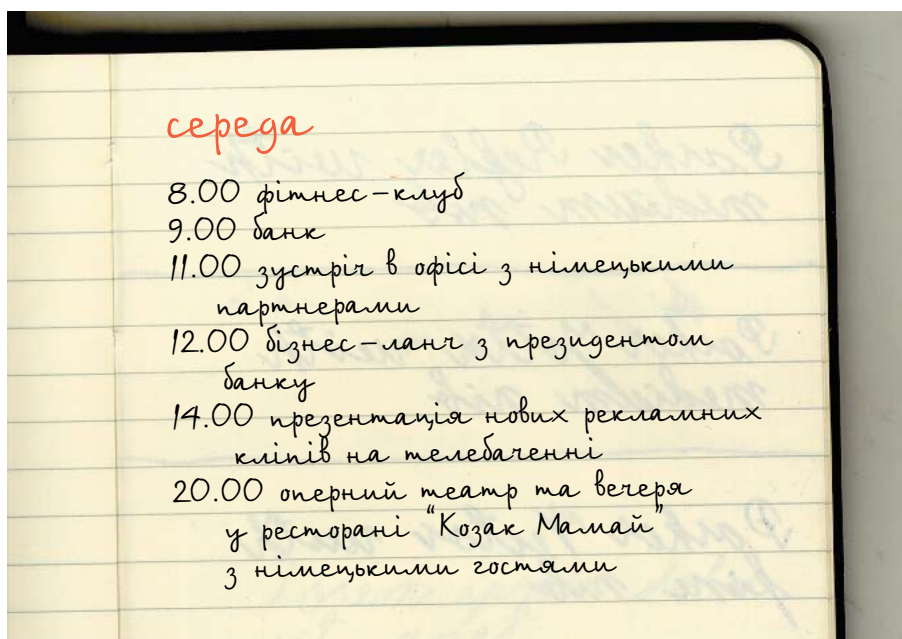 середа
8.00 фітнес-клуб
9.00 банк
11.00 зустріч в офісі з німецькими
партнерами
12.00 бізнес-ланч з президентом
банку
14.00 презентація нових рекламних
кліпів на телебаченні
20.00 оперний театр та вечеря
у ресторані "Козак Мамай"
з німецькими гостями